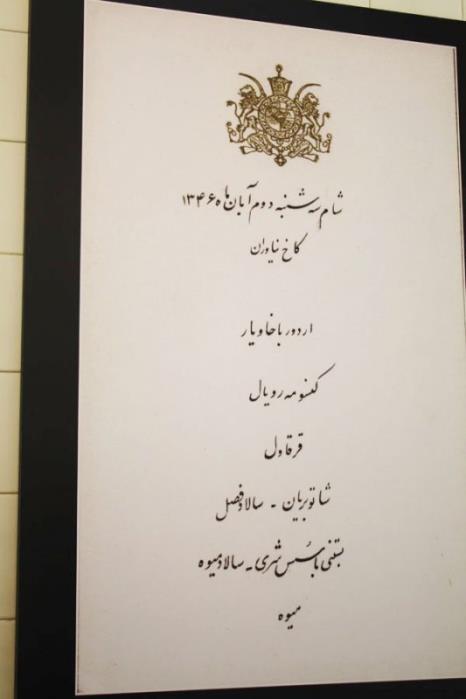 شام سه شنبه دوم آبان ماه ۱۳۴۶
کاخ نیاوران
اردور با خاویار
کنسومه رویال
قرقاول
شاتوبریان - سالاد فصل
بستنی با سس شری - سالاد میوه
میوه